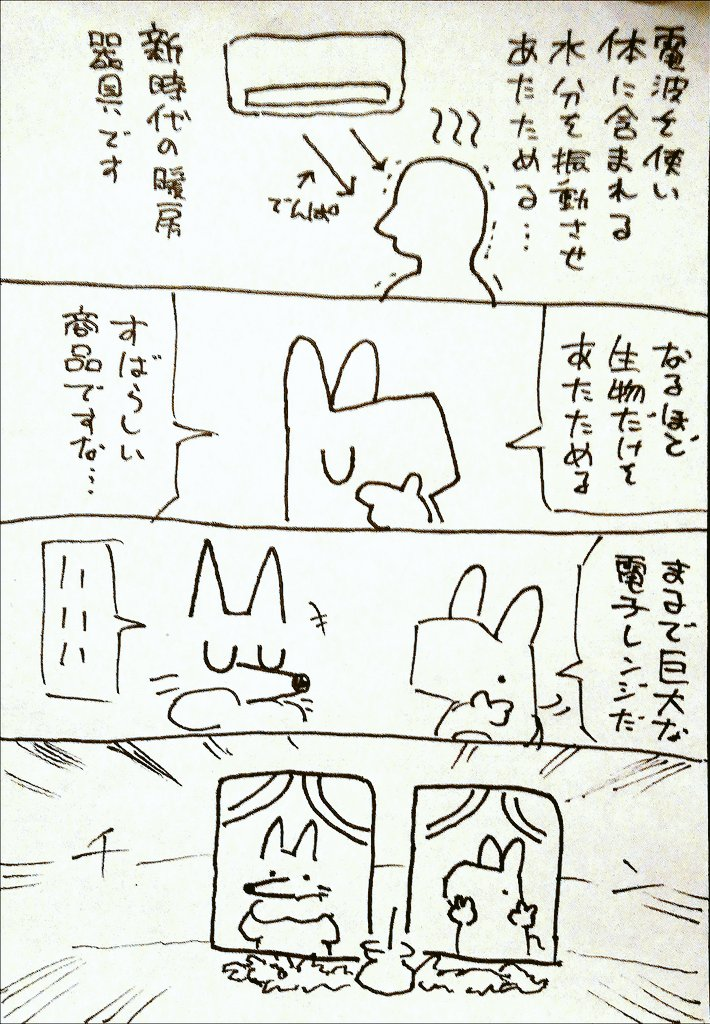 電波を使い
体に含まれる
水分を振動させ
あたためる…
でんぱ
新時代の暖房
器具です
なるほど
生物だけを
あたためる
すばらしい
商品ですな…
まるで巨大な
電子レンジだ
ハハハ
チーン